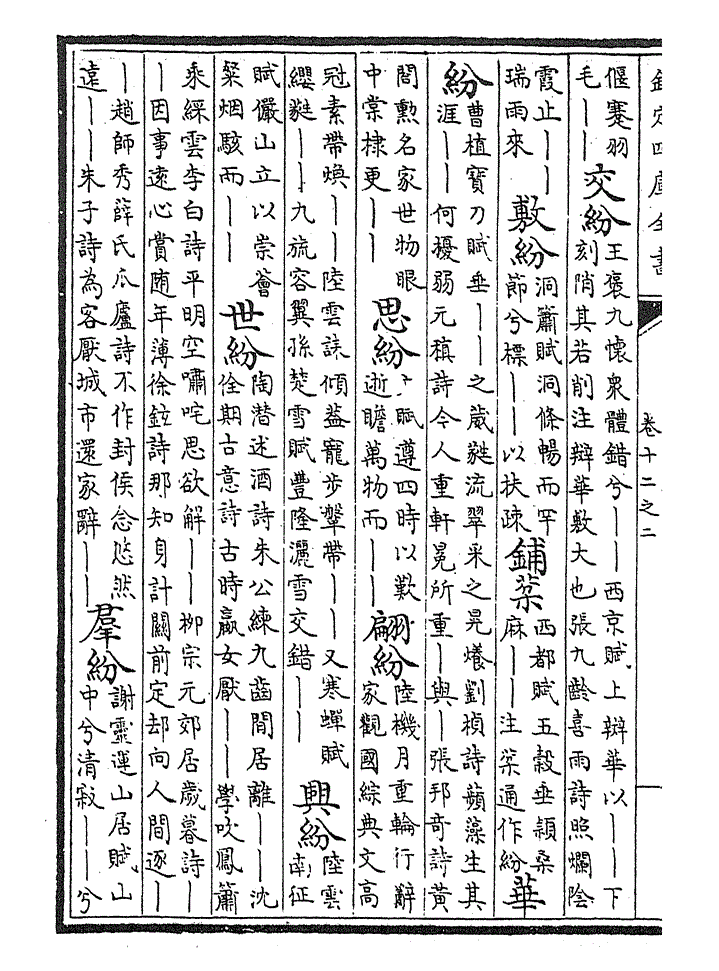 欽定四庫全書
卷十二之二
偃蹇羽
毛丨丨
交紛
王褒九懷衆體錯兮丨丨西京賦上辯華以丨丨下
刻陗其若削注辯華敷大也張九齡喜雨詩照爛陰
霞止丨丨
瑞雨來
敷紛
洞簫賦洞條暢而罕
節兮標丨丨以扶疎
鋪棻
西都賦五穀垂穎桑
麻丨丨注棻通作紛
華
紛
曹植寶刀賦垂丨丨之葳蕤流翠采之晃爦劉楨詩蘋藻生其
涯丨丨何擾弱元稹詩令人重軒冕所重丨與丨張邦奇詩黄
閤勲名家世物眼
中棠棣更丨丨
思紛
賦遵四時以歎
逝瞻萬物而丨丨
翩紛
陸機月重輪行辭
家觀國綜典文高
冠素帶煥丨丨陸雲誄傾葢寵步鞶帶丨丨又寒蟬賦
纓蕤丨丨九旒容翼孫楚雪賦豐隆灑雪交錯丨丨
興紛
陸雲
南征
賦儼山立以崇薈
粲烟駭而丨丨
世紛
陶潛述酒詩朱公練九齒閒居離丨丨沈
佺期古意詩古時嬴女厭丨丨學吹鳳簫
乘綵雲李白詩平明空嘯咤思欲解丨丨柳宗元郊居歲暮詩丨
丨因事遠心賞隨年薄徐鉉詩那知身計關前定却向人間逐丨
丨趙師秀薛氏瓜廬詩不作封侯念悠然
遠丨丨朱子詩為客厭城市還家辭丨丨
羣紛
謝靈運山居賦山
中兮清寂丨丨兮